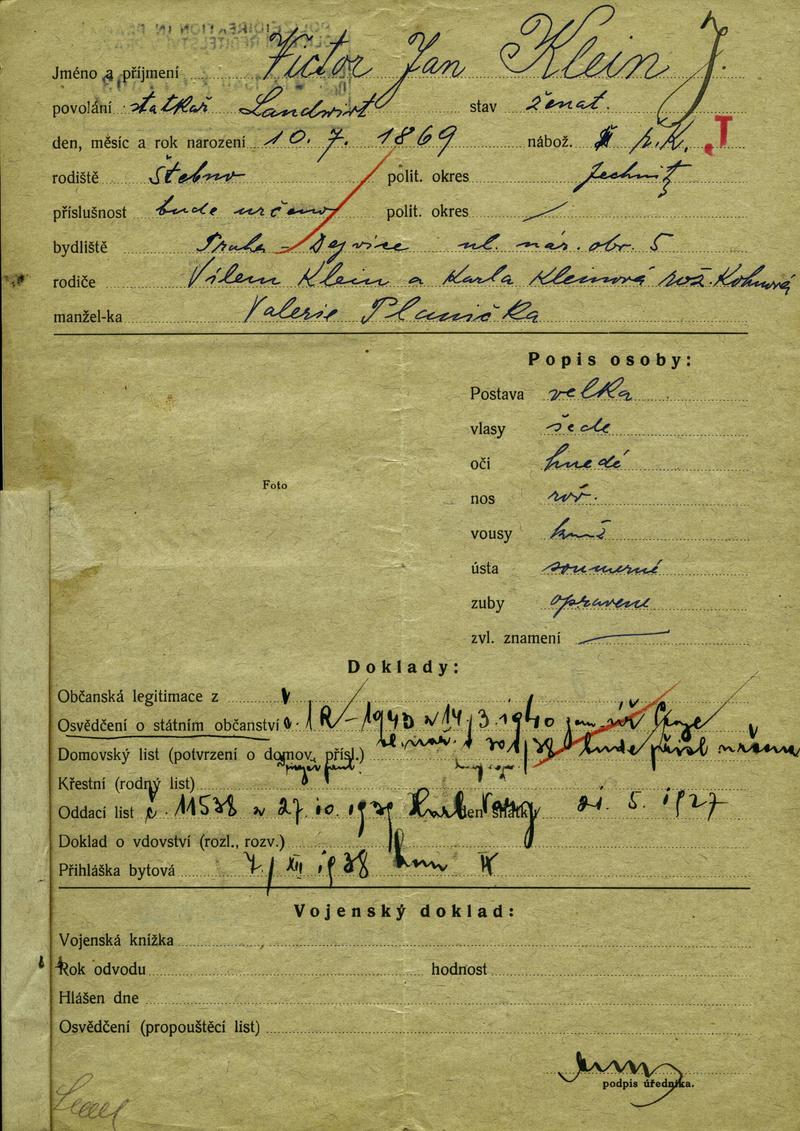 Jméno a příjmení Victor Jan Klein J
povolání statkář Landwirt stav ženat.
den, měsíc a rok narození 10. 7. 1869 nábož. ř.K. J
rodiště Štebno polit. okres Jechnitz
příslušnost bude určeno polit. okres
bydliště Praha - Dejvice ul. nár. obr. 5
rodiče Vilem Klein a Karla Kleinová rož. Kohnová
manžel-ka Valerie Planička
Popis osoby:
Postava velka
vlasy šede
oči hnedé
Foto
nos rov.
vousy knír
ústa soumerné
zuby opravene
zvl. znamení
Doklady:
Občanská legitimace z
Osvědčení o státním občanství 1940 14/3. 1940
Domovský list (potvrzení o domov. přísl.) bude
Křestní (rodný list)
Oddací list č. 11538 z 27. 10. 1939 den sňatku 21. 5. 1927
Doklad o vdovství (rozl., rozv.)
Přihláška bytová 7/XII 1938
Vojenský doklad:
Vojenská knížka
Rok odvodu hodnost
Hlášen dne
Osvědčení (propouštěcí list)
podpis úředníka.